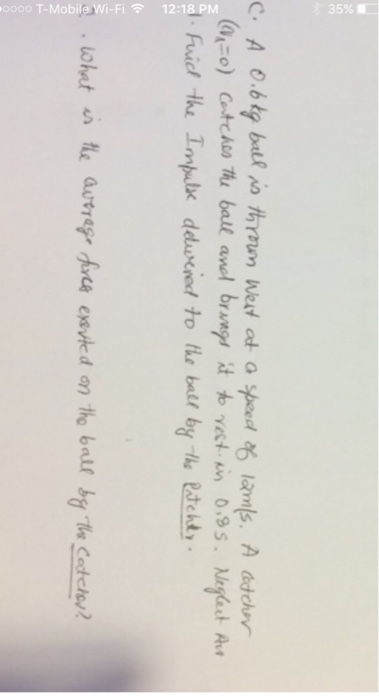 oooo T-Mobile Wi-Fi 12:18 PM 35%
C. A 0.6 kg ball is thrown West at a speed of 12m/s. A catcher
(=0) catches the ball and brings it to rest in 0.8 s. Neglect Air
1. Find the Impulse delivered to the ball by the Pitcher.
. What is the average force exerted on the ball by the Catcher?